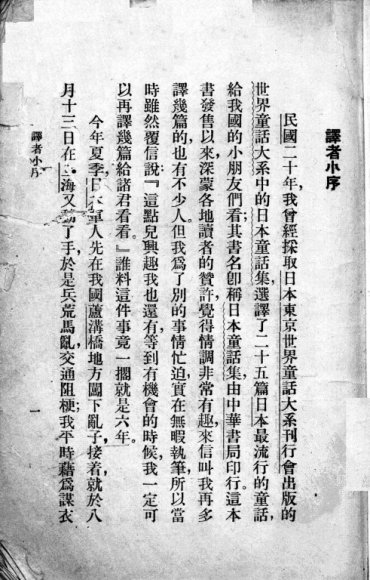 譯者小序
民國二十年，我曾經採取日本東京世界童話大系刊行會出版的
世界童話大系中的日本童話集，選譯了二十五篇日本最流行的童話，
給我國的小朋友們看；其書名卽稱日本童話集，由中華書局印行。這本
書發售以來，深蒙各地讀者的贊許，覺得情調非常有趣，來信叫我再多
譯幾篇的，也有不少人。但我爲了別的事情忙迫，實在無暇執筆，所以當
時雖然覆信說：『這點兒興趣我也還有，等到有機會的時候，我一定可
以再譯幾篇給諸君看看。』誰料這件事竟一擱就是六年。
今年夏季，日本軍人先在我國蘆溝橋地方闖下亂子，接着就於八
月十三日在上海又動了手，於是兵荒馬亂，交通阻梗；我平時藉爲謀衣
譯者小序
一